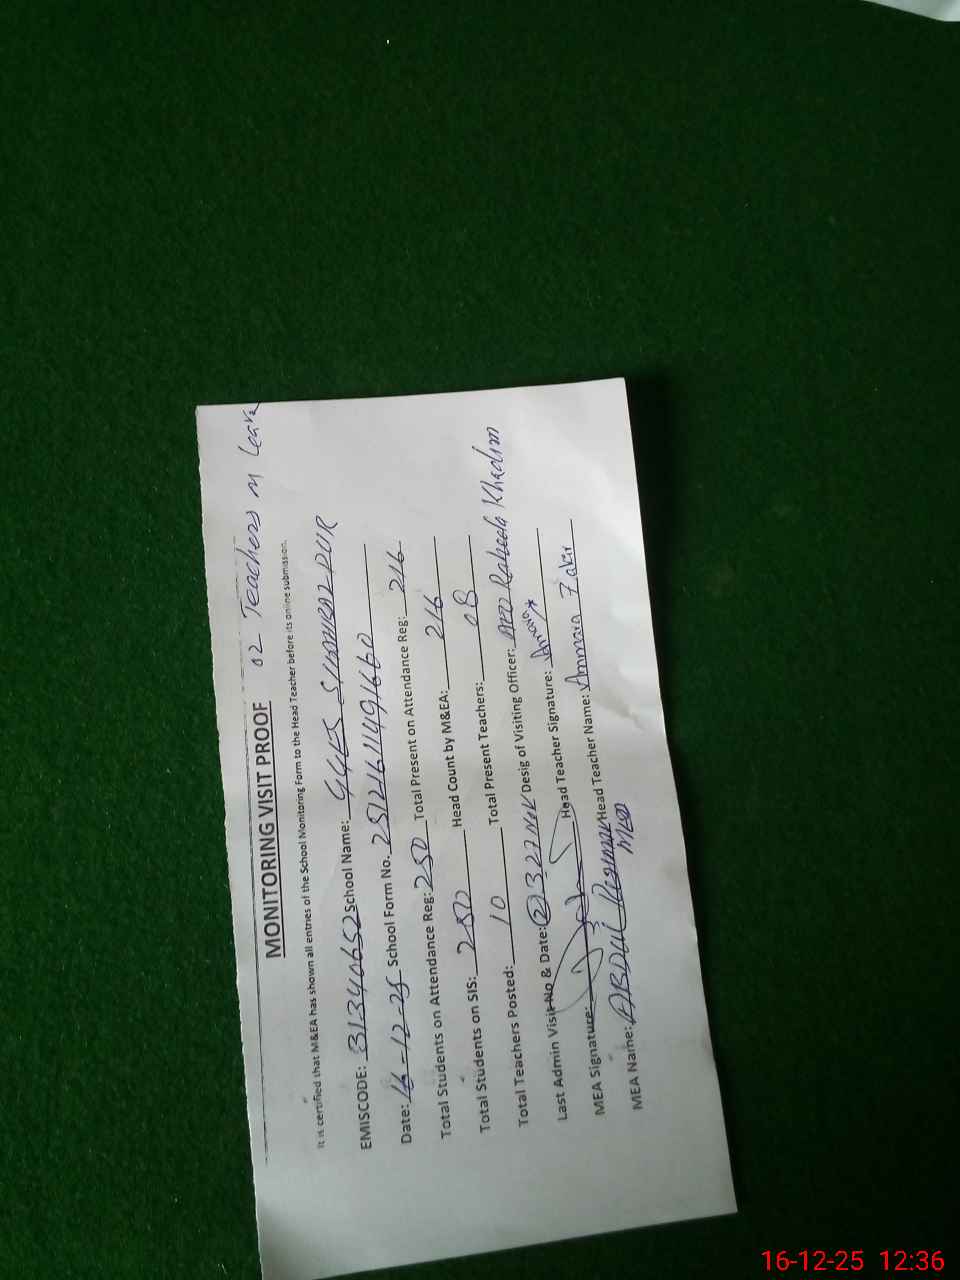 02 Teachers on Leave
MONITORING VISIT PROOF
It is certified that M&EA has shown all entries of the School Monitoring Form to the Head Teacher before its online submission.
EMISCODE: 31340652 School Name: GGES SHAHBAZ PUR
Date: 16-12-25 School Form No. 2512161149 1660
Total Students on Attendance Reg: 250 Total Present on Attendance Reg: 216
Total Students on SIS: 250 Head Count by M&EA: 216
Total Teachers Posted: 10 Total Present Teachers: 08
Last Admin Visit No & Date: (2) 27 Nov Desig of Visiting Officer: AEO Raheela Khadim
MEA Signature: Head Teacher Signature:
MEA Name: ABDUL Head Teacher Name: Ammara Zakir
MEA
16-12-25 12:36